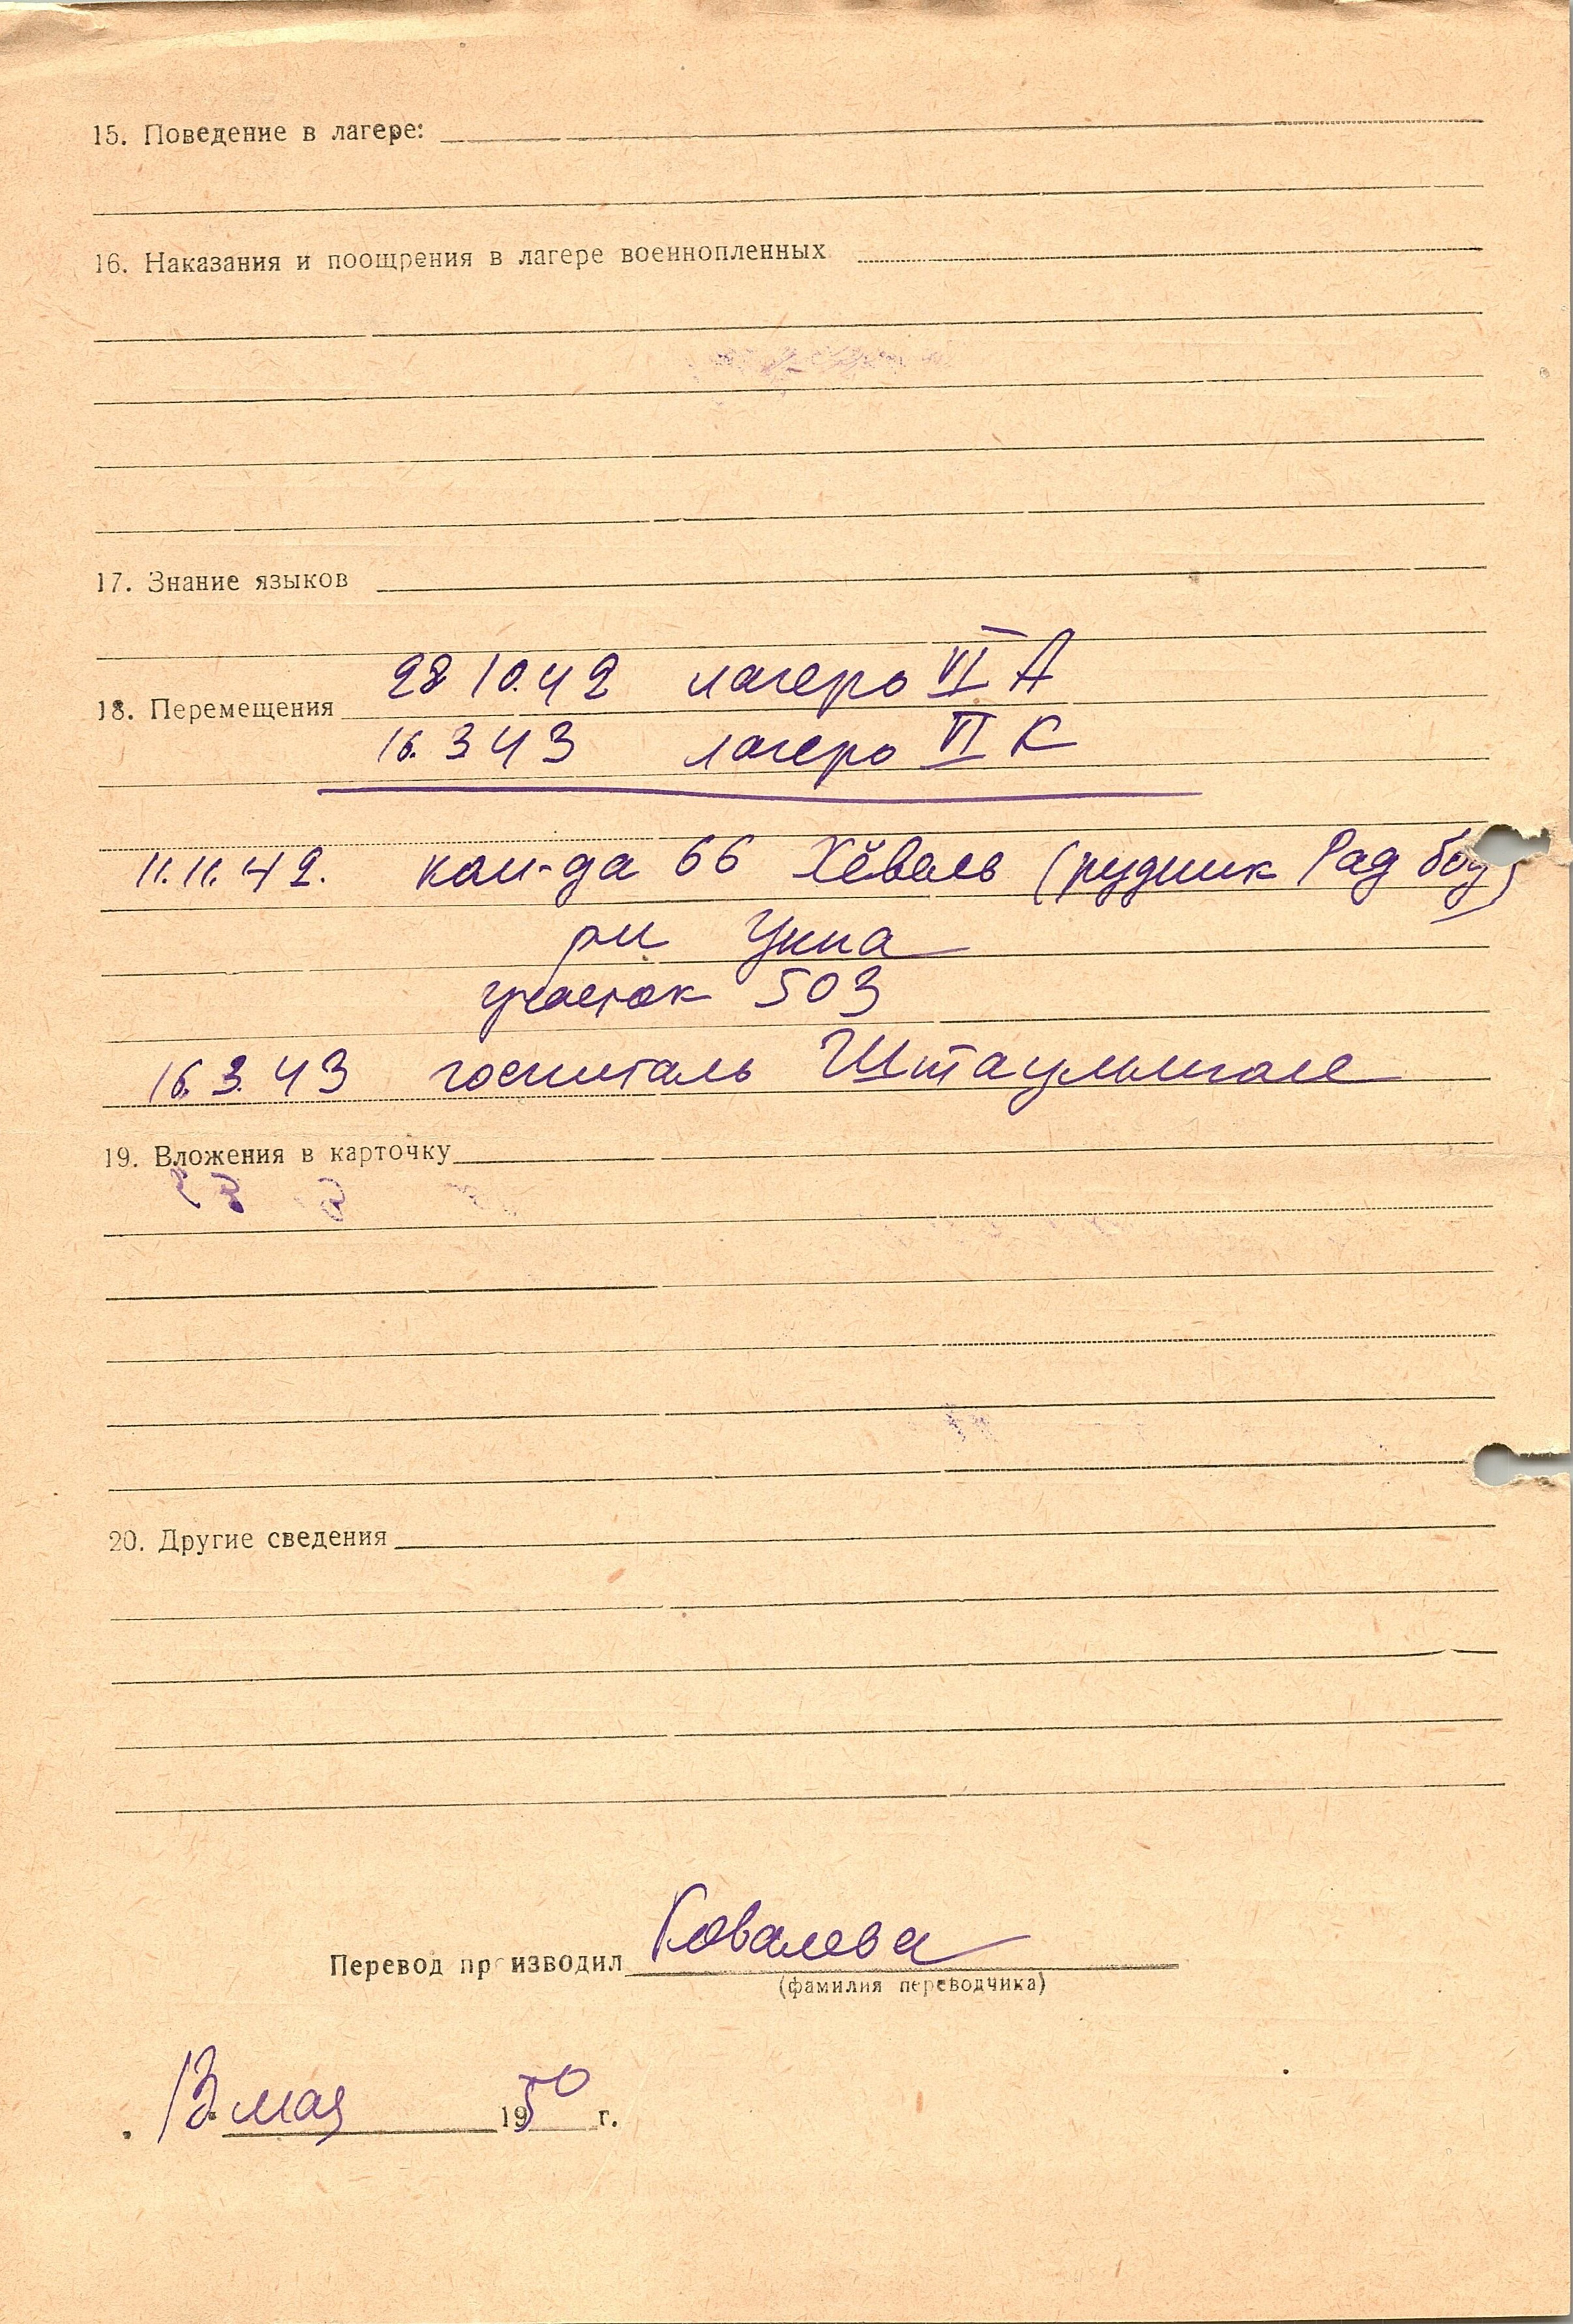 15. Поведение в лагере:
16. Наказания и поощрения в лагере военнопленных
17. Знание языков
28 10.42 лагерь VI А
18. Перемещения
16. 3 43 лагерь VI К
11. 11. 42. ком-да 66 Хёвель (рудник Рад бод)
рн Унна
участок 503
16. 3. 43 госпиталь
19. Вложения в карточку
20. Другие сведения
Перевод производил Ковалева
(фамилия переводчика)
13 мая 1950 г.